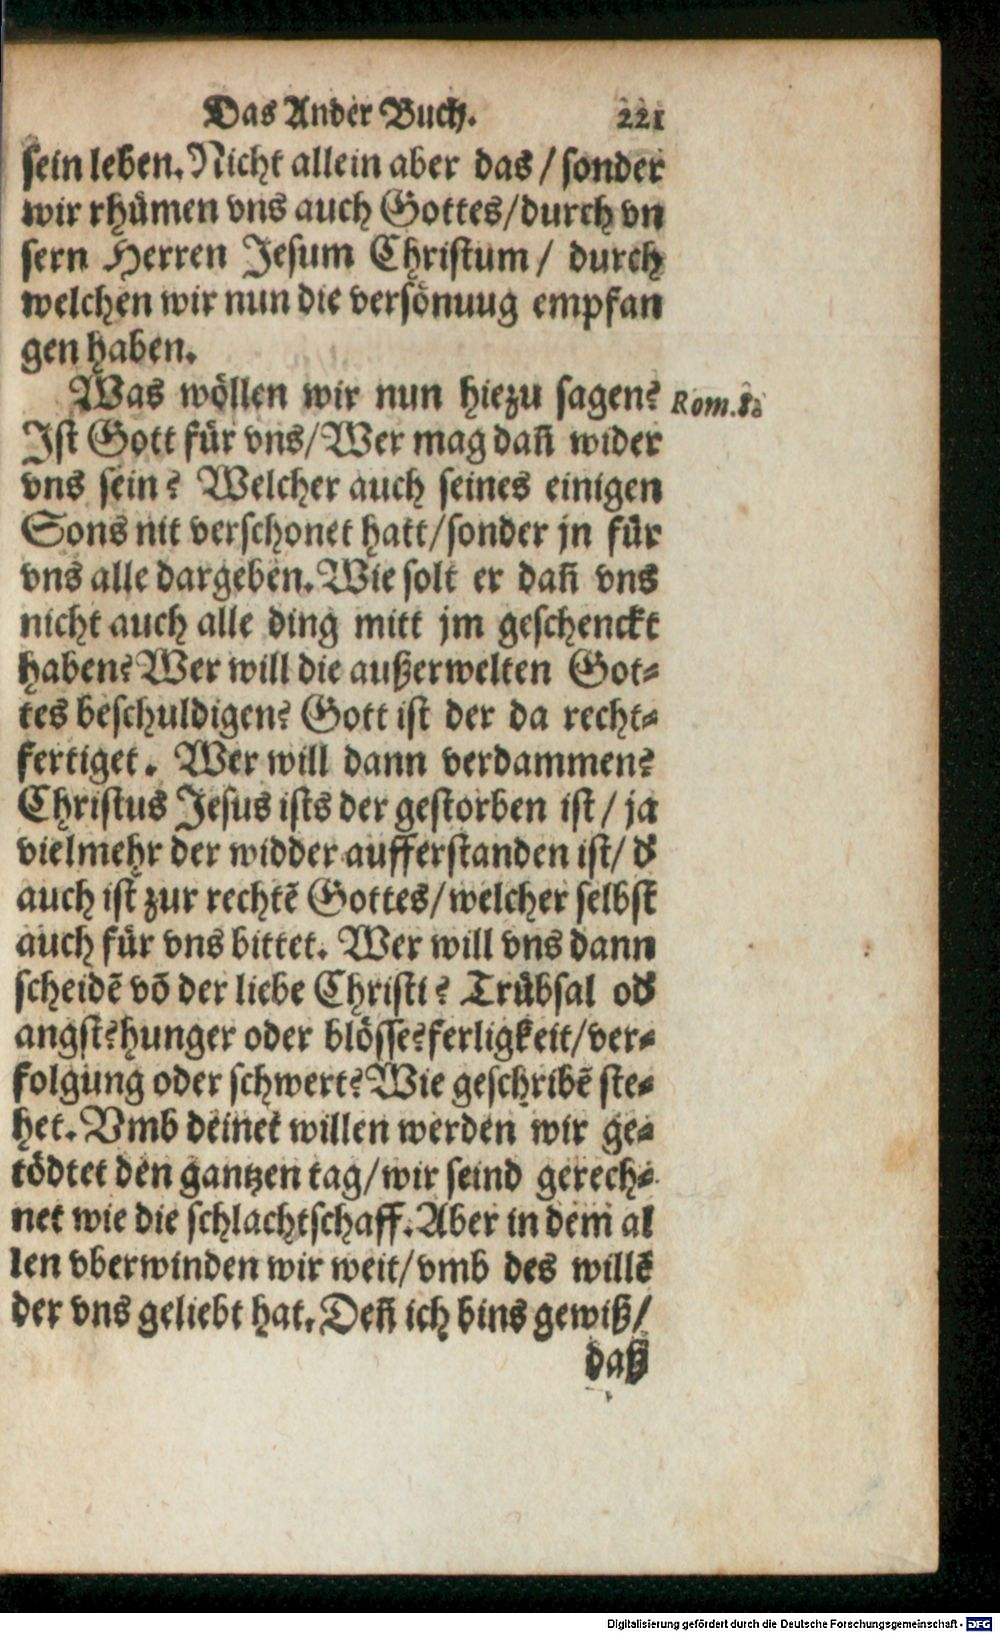 Das Ander Buch. 221
sein leben. Nicht allein aber das / sonder
wir rhümen vns auch Gottes/durch vn
sern Herren Jesum Christum / durch
welchen wir nun die versönuug empfan
gen haben.
Was wöllen wir nun hiezu sagen? Rom.8.
Ist Gott für vns/Wer mag dañ wider
vns sein? Welcher auch seines einigen
Sons nit verschonet hatt/sonder jn für
vns alle dargeben. Wie solt er dañ vns
nicht auch alle ding mitt jm geschenckt
haben? Wer will die außerwelten Got-
tes beschuldigen? Gott ist der da recht-
fertiget. Wer will dann verdammen?
Christus Jesus ists der gestorben ist / ja
vielmehr der widder aufferstanden ist/ d'
auch ist zur rechtẽ Gottes/welcher selbst
auch für vns bittet. Wer will vns dann
scheidẽ võ der liebe Christi? Trübsal od'
angst?hunger oder blösse?ferligkeit/ver-
folgung oder schwert? Wie geschribẽ ste-
het. Vmb deinet willen werden wir ge-
tödtet den gantzen tag/wir seind gerech-
net wie die schlachtschaff. Aber in dem al
len vberwinden wir weit/vmb des willẽ
der vns geliebt hat. Deñ ich bins gewiß/
daß
Digitalisierung gefördert durch die Deutsche Forschungsgemeinschaft - DFG